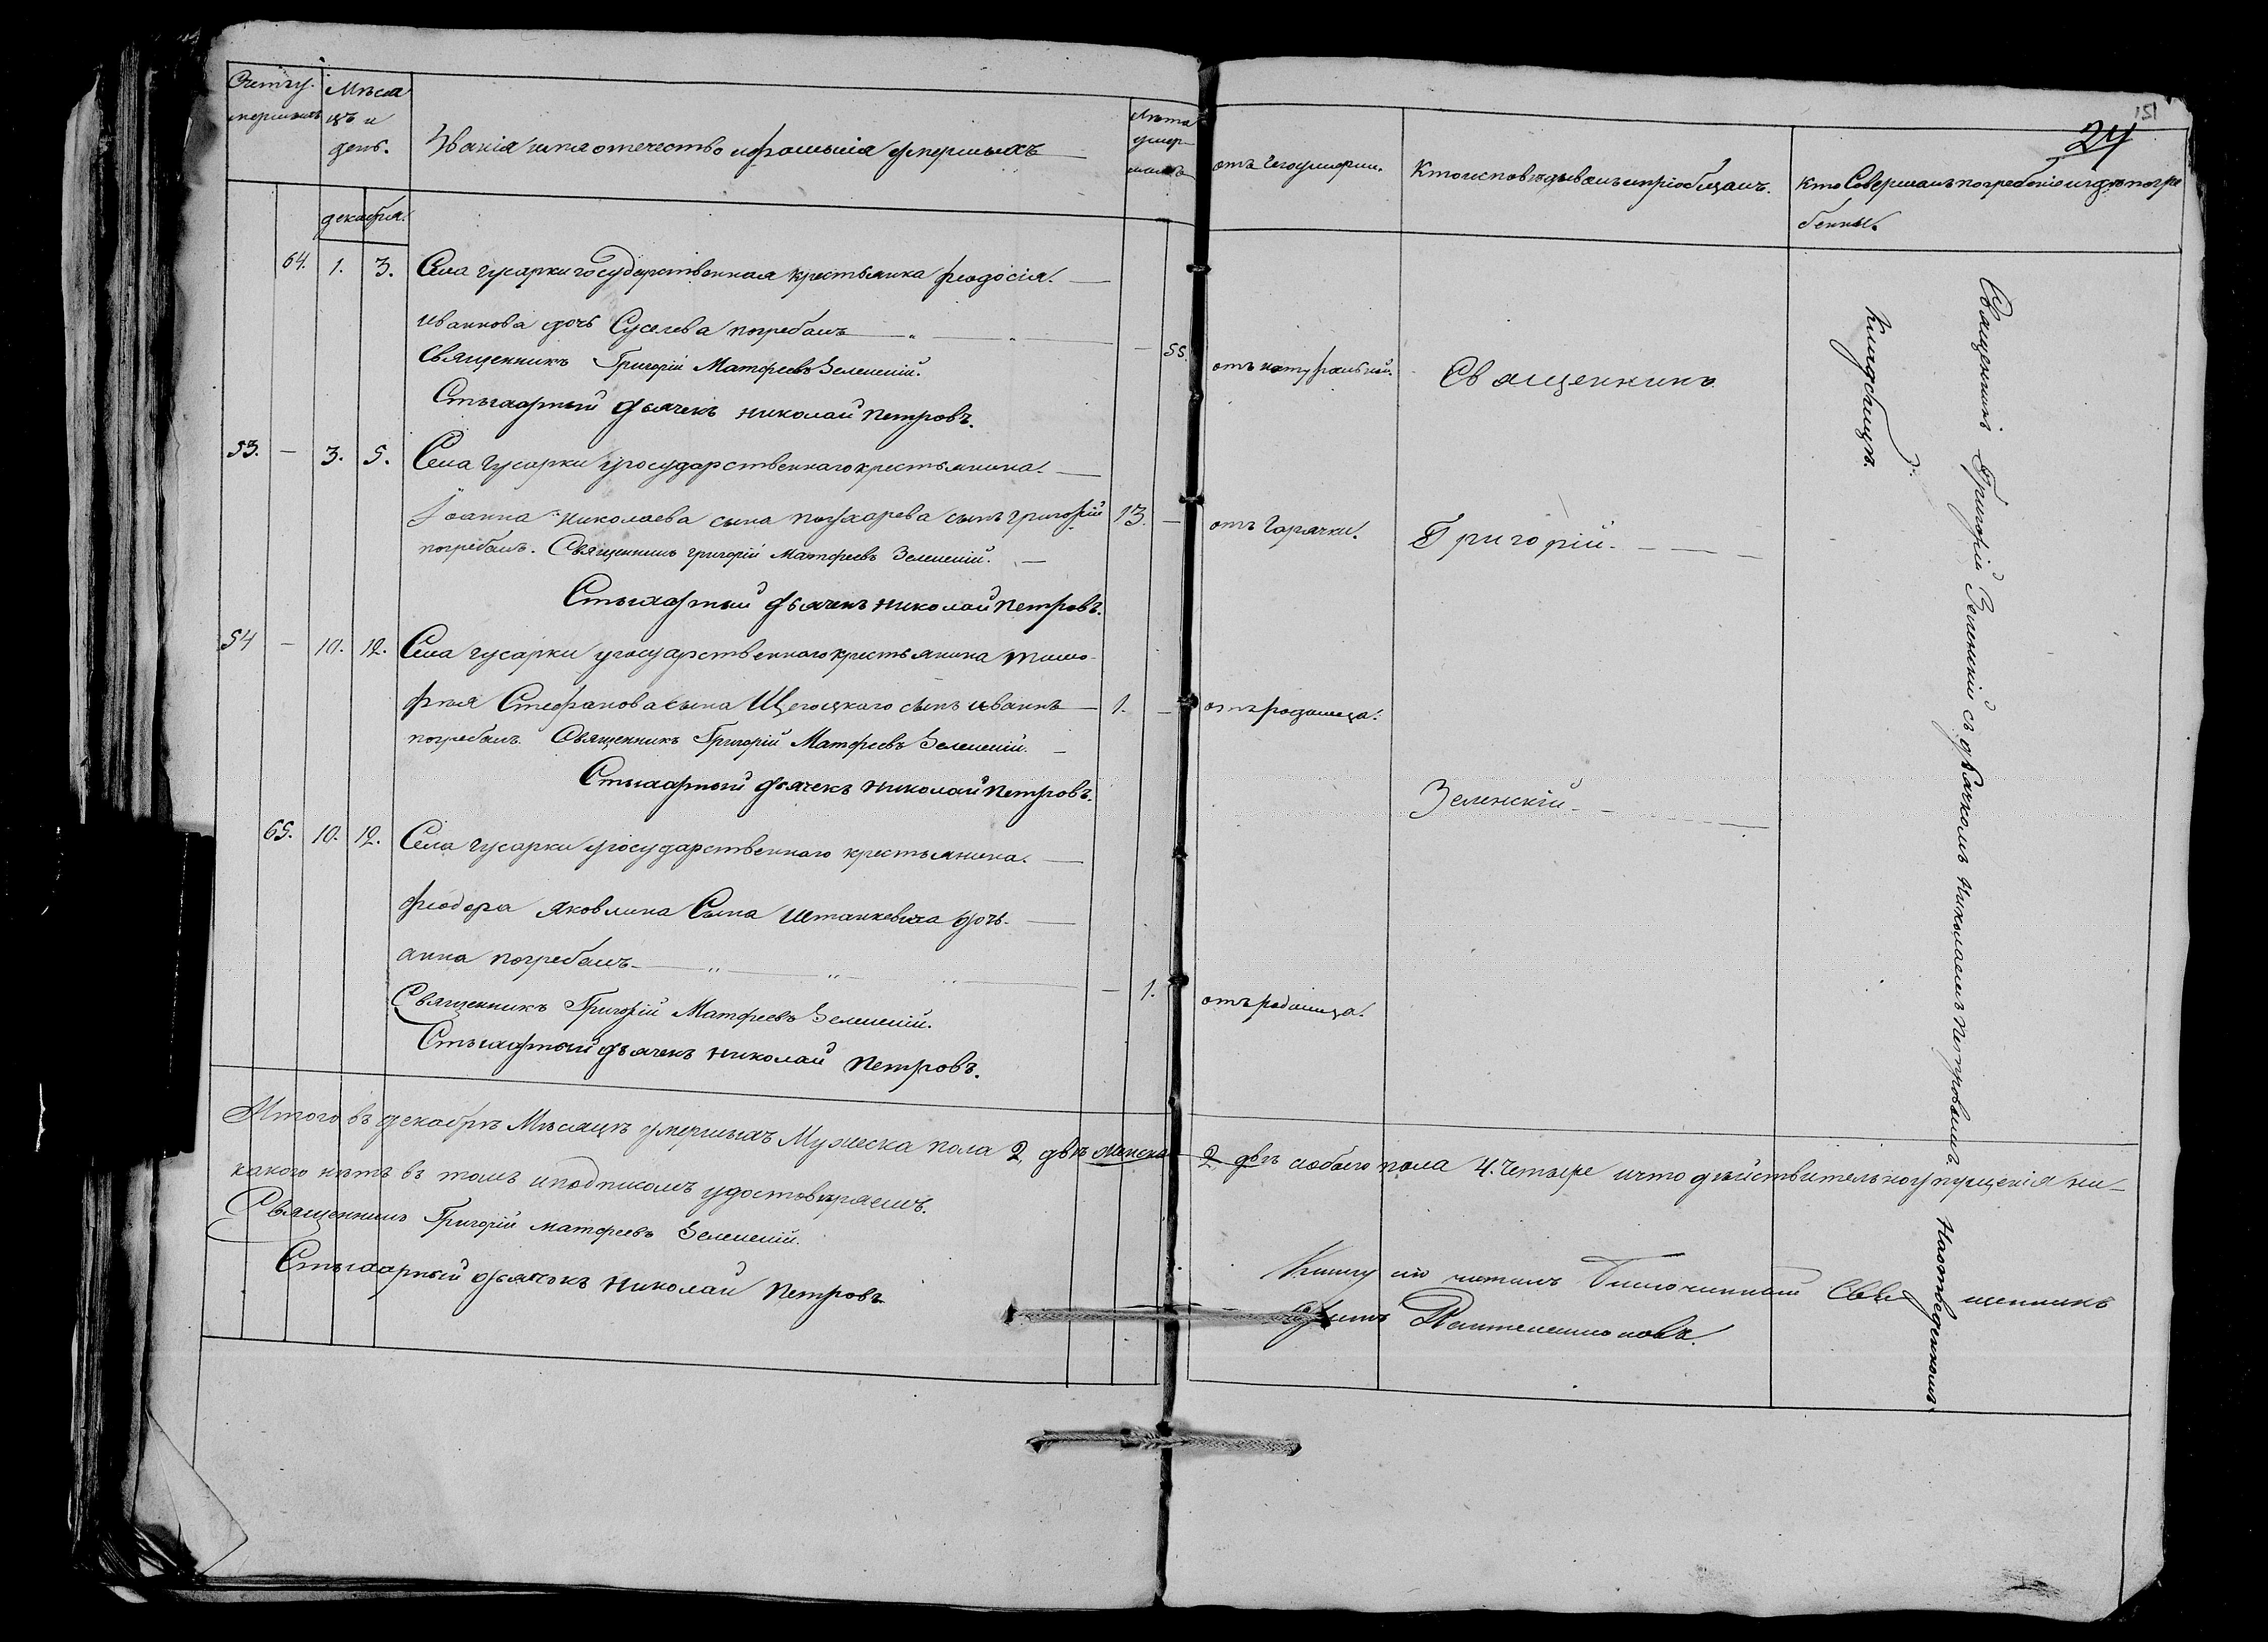 151
24
Счетъ у-
мершихъ
Мѣся
цъ и
день.
Званія имя отечество и фамилія умершихъ
Лѣта
умер-
шихъ
отъ чего умерли.
Кто исповѣдывалъ и пріобщалъ.
Кто Совершалъ погребеніе и гдѣ погре
бенны.
декабря.
64. 1. 3. Села гусарки государственная крестьянка феодосія.
иваннова дочь Суслева погребалъ — 55. отъ натуральной.
Священникъ Григорій Матфеевъ Зеленскій.
Стихарный дьячекъ николай петровъ.
53. — 3. 5. Села гусарки у государственнаго крестьянина.
Іоанна николаева сына сынъ григорій 13. — отъ горячки.
погребалъ. Священникъ григорій матфеевъ Зеленскій.
Стихарный дьячекъ николай петровъ.
54 — 10. 12. Села гусарки у госуарственнаго крестьянина тимо-
фея Стефанова сына Щегоцкаго сынъ иваннъ 1. — отъ родимца.
погребалъ. Священникъ Григорій Матфеевъ Зеленскій.
Стихарный дьячекъ николай петровъ.
65. 10. 12. Села гусарки у государственнаго крестьянина.
феодора яковлива Сына дочь
анна погребалъ — 1. отъ родимца.
Священникъ Григорій Матфеевъ Зеленскій.
Стихарный дьячекъ николай петровъ.
Священникъ
Григорій.
Зеленскій
Священникъ Григорій Зеленскій съ дьячкомъ николаемъ петровымъ
на отведенномъ
кладбищѣ.
Итого въ декабрѣ Мѣсяцѣ умершихъ Мужеска пола 2, двѣ женска 2, двѣ и обоего пола 4. четыре и что дѣйствительно упущенія ни-
какого нѣтъ въ томъ и подписомъ удостовѣряемъ.
Священникъ Григорій матфеевъ Зеленскій.
Стихарный дьячокъ николай петровъ
Книгу сію читалъ Благочинный Священникъ